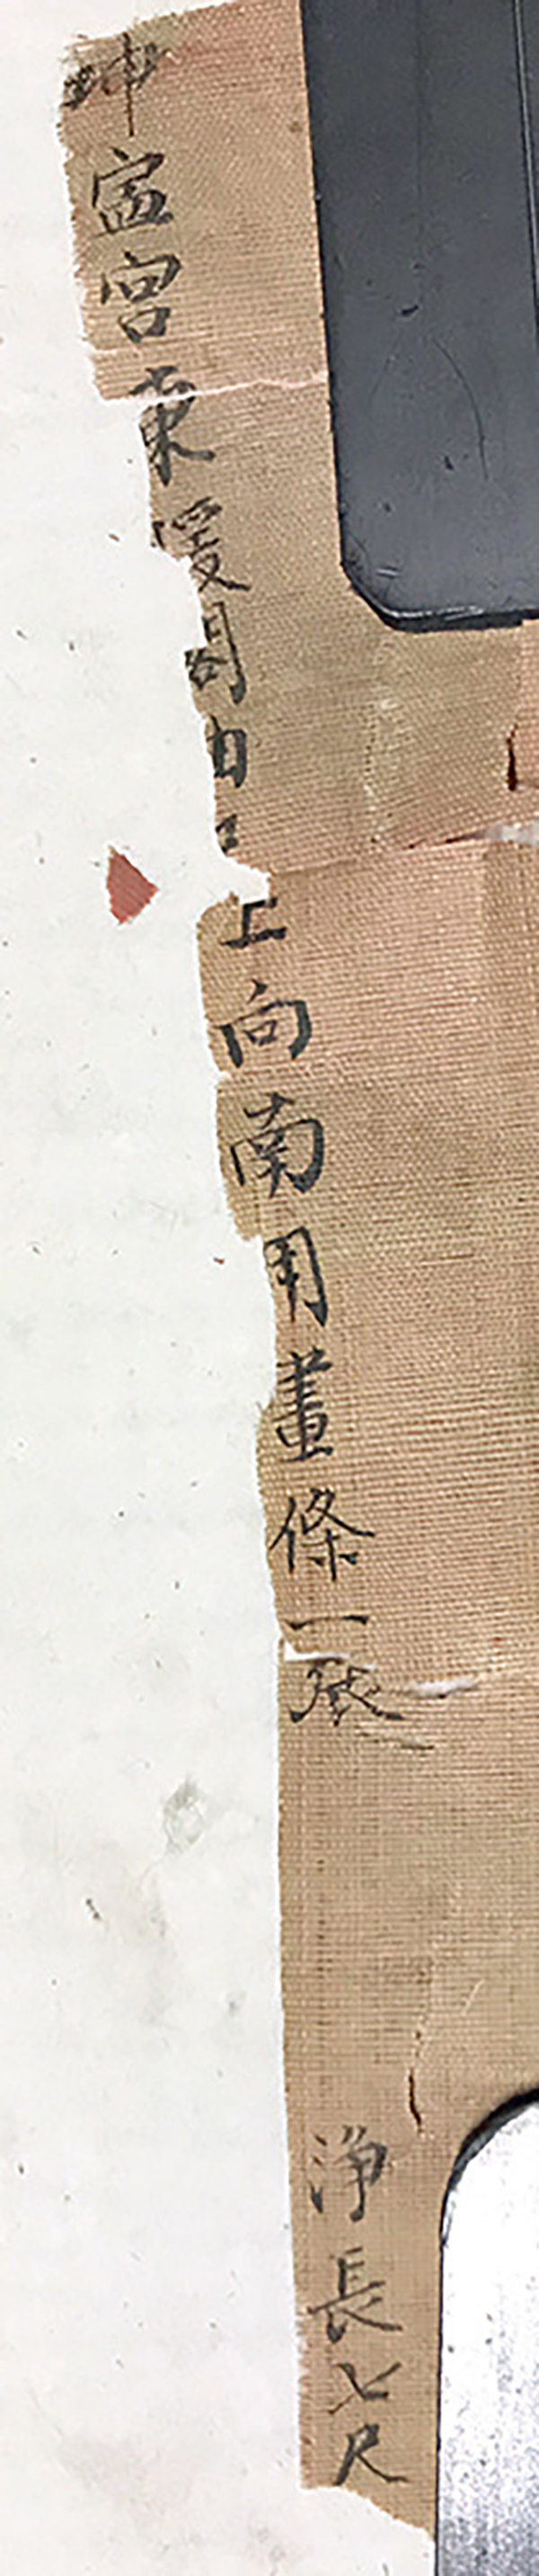 坤寍宮東煖閣内上向南用畫條一張
淨長七尺